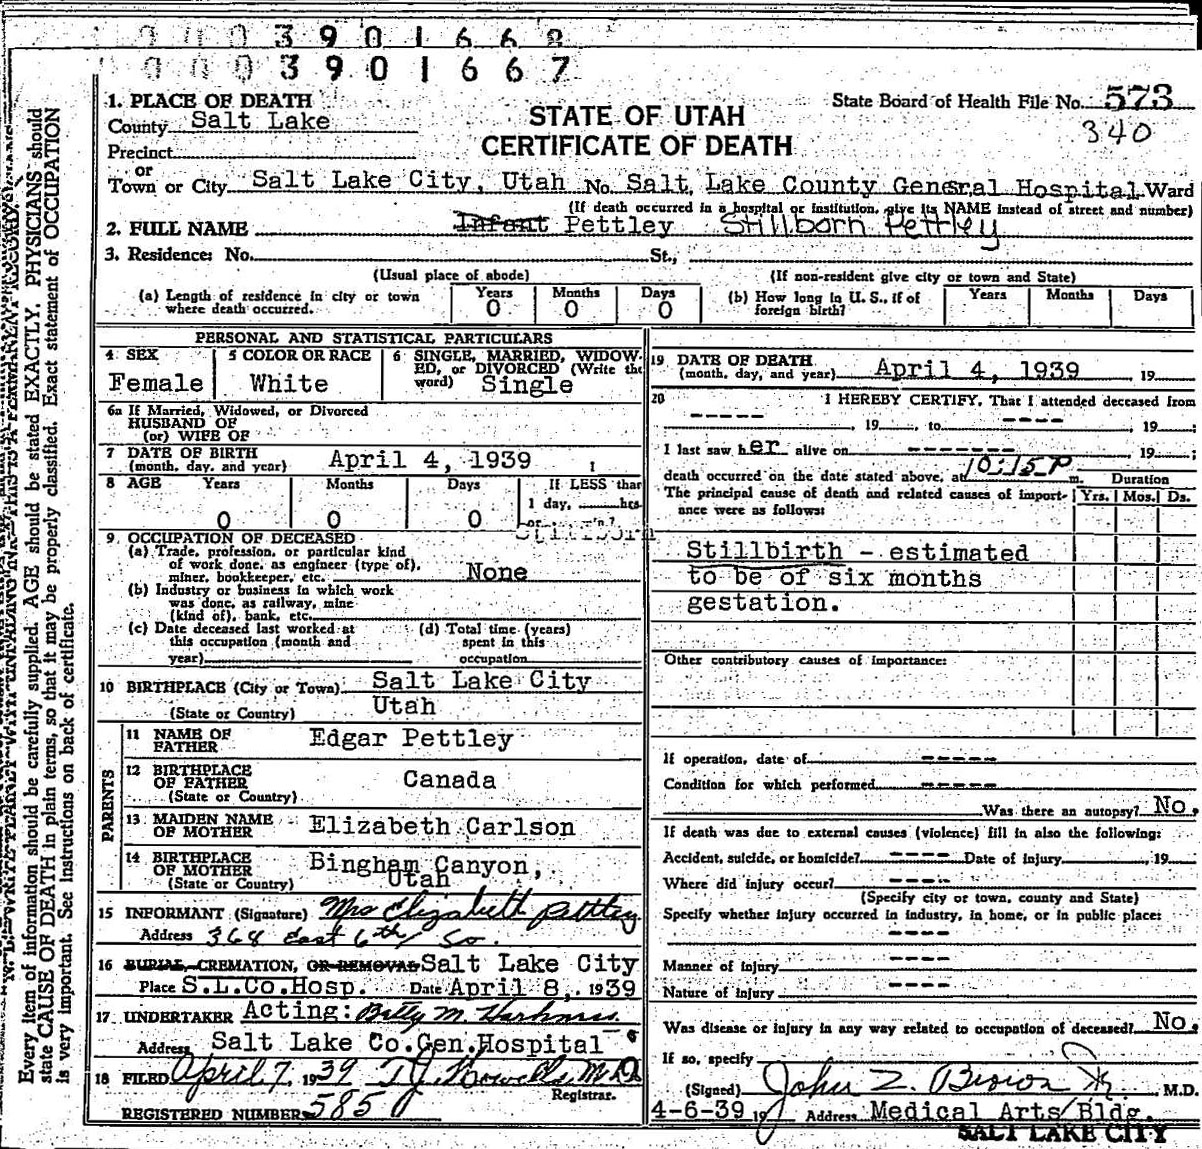 0003901668
0003901667
1. PLACE OF DEATH
County Salt Lake
Precinct
or
Town or City Salt Lake City, Utah No. Salt Lake County General Hospital Ward
STATE OF UTAH
CERTIFICATE OF DEATH
State Board of Health File No. 573
340
(If death occurred in a hospital or institution, give its NAME instead of street and number)
2. FULL NAME Infant Pettley Stillborn Pettley
3. Residence: No. St.,
(Usual place of abode) (If non-resident give city or town and State)
(a) Length of residence in city or town where death occurred. Years 0 Months 0 Days 0
(b) How long in U. S., if of foreign birth? Years Months Days
PERSONAL AND STATISTICAL PARTICULARS
4 SEX Female
5 COLOR OR RACE White
6 SINGLE, MARRIED, WIDOWED, or DIVORCED (Write the word) Single
6a If Married, Widowed, or Divorced
HUSBAND OF
(or) WIFE OF
7 DATE OF BIRTH
(month, day, and year) April 4, 1939
8 AGE Years 0 Months 0 Days 0
If LESS than
1 day, hrs
Stillborn
9. OCCUPATION OF DECEASED
(a) Trade, profession, or particular kind
of work done, as engineer (type of),
miner, bookkeeper, etc. None
(b) Industry or business in which work
was done, as railway, mine
(kind of), bank, etc.
(c) Date deceased last worked at
this occupation (month and
year)
(d) Total time (years)
spent in this
occupation
10 BIRTHPLACE (City or Town) Salt Lake City
(State or Country) Utah
PARENTS
11 NAME OF
FATHER Edgar Pettley
12 BIRTHPLACE
OF FATHER Canada
(State or Country)
13 MAIDEN NAME
OF MOTHER Elizabeth Carlson
14 BIRTHPLACE
OF MOTHER Bingham Canyon,
(State or Country) Utah
15 INFORMANT (Signature) Mrs Elizabeth Pettley
Address 368 East 6th So.
16 BURIAL, CREMATION, OR REMOVAL Salt Lake City
Place S.L.Co.Hosp. Date April 8, 1939
17 UNDERTAKER Acting: Betty M. Harkness
Address Salt Lake Co.Gen.Hospital
18 FILED April 7, 1939 T J Howells M.D.
Registrar.
REGISTERED NUMBER 585
19 DATE OF DEATH
(month, day, and year) April 4, 1939 19
20 I HEREBY CERTIFY, That I attended deceased from
-----, 19 , to ----, 19 ;
I last saw her alive on ------- 19 ;
death occurred on the date stated above, at 10:15 P m. Duration
The principal cause of death and related causes of importance were as follows: Yrs. Mos. Ds.
Stillbirth - estimated
to be of six months
gestation.
Other contributory causes of importance:
If operation, date of -----
Condition for which performed -----
Was there an autopsy? No.
If death was due to external causes (violence) fill in also the following:
Accident, suicide, or homicide? ---- Date of injury , 19
Where did injury occur? ----
(Specify city or town, county and State)
Specify whether injury occurred in industry, in home, or in public place:
----
Manner of injury ----
Nature of injury ----
Was disease or injury in any way related to occupation of deceased? No.
If so, specify
(Signed) John Z. Brown Jr. M.D.
4-6-39 19 Address Medical Arts Bldg.
SALT LAKE CITY
Every item of information should be carefully supplied. AGE should be stated EXACTLY. PHYSICIANS should
state CAUSE OF DEATH in plain terms, so that it may be properly classified. Exact statement of OCCUPATION
is very important. See instructions on back of certificate.